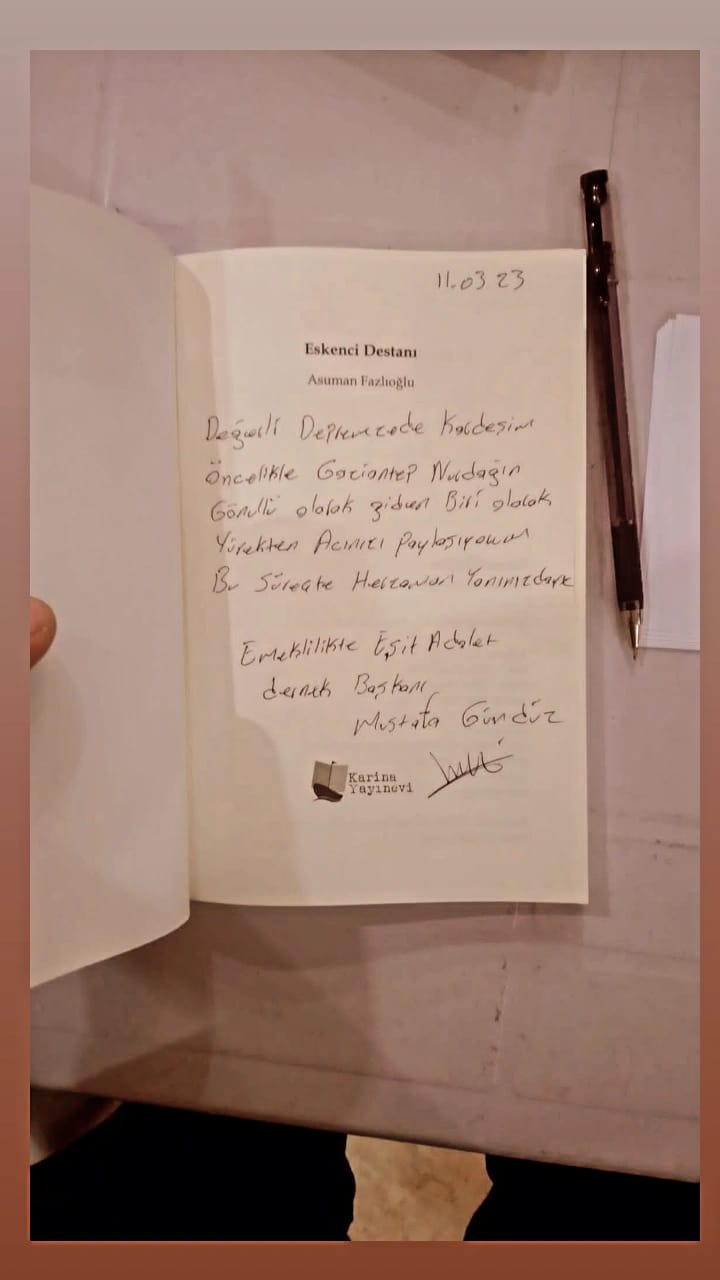 11.03 23
Eskenci Destanı
Asuman Fazlıoğlu
Değerli Depremzede Kardeşim
Öncelikle Gaziantep Nurdağın
Gönüllü olarak giden Biri olarak
Yürekten Acınızı Paylaşıyorum
Bu Süreçte Herzaman Yanınızdayız
Emeklilikte Eşit Adalet
dernek Başkanı
Mustafa Gündüz
Karina
Yayınevi